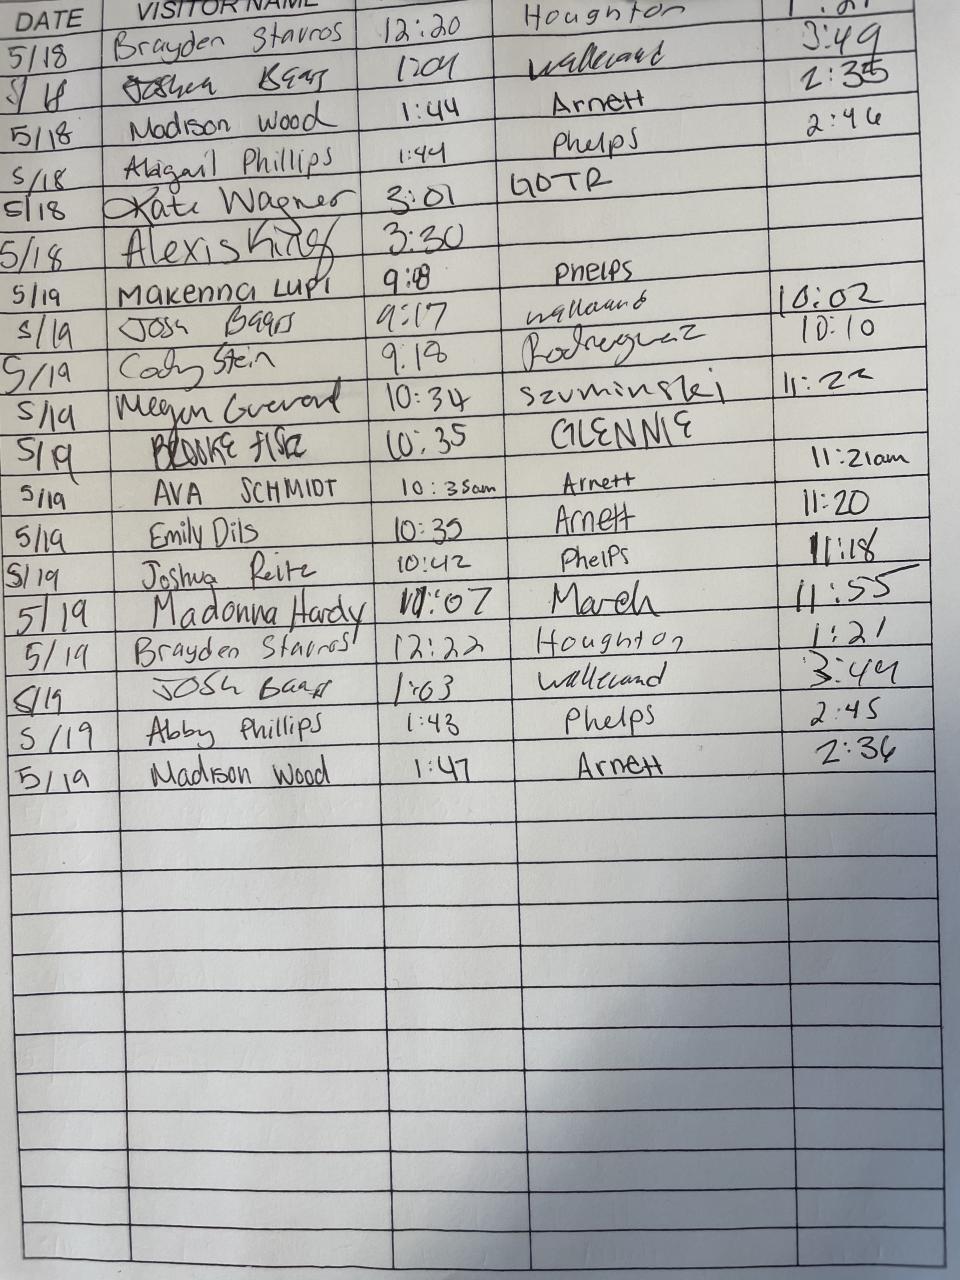 DATE VISITOR NAME
5/18 Brayden Stavros 12:20 Houghton 1:21
5/18 Joshua Baars 1204 wallerand 3:49
5/18 Madison Wood 1:44 Arnett 2:35
5/18 Abigail Phillips 1:44 Phelps 2:46
5/18 Kate Wagner 3:01 GOTR
5/18 Alexis King 3:30
5/19 Makenna Lupi 9:18 Phelps
5/19 Josh Baars 9:17 wallerand 10:02
5/19 Cody Stein 9:18 Rodreguez 10:10
5/19 Megan 10:34 Szuminski 11:22
5/19 BROOKE 10:35 GLENNIE
5/19 AVA SCHMIDT 10:35am Arnett 11:21am
5/19 Emily Dils 10:35 Arnett 11:20
5/19 Joshua Reitz 10:42 Phelps 11:18
5/19 Madonna Hardy 11:07 March 11:55
5/19 Brayden Stavros 12:22 Houghton 1:21
5/19 Josh Baars 1:03 wallerand 3:49
5/19 Abby Phillips 1:43 Phelps 2:45
5/19 Madison Wood 1:47 Arnett 2:36